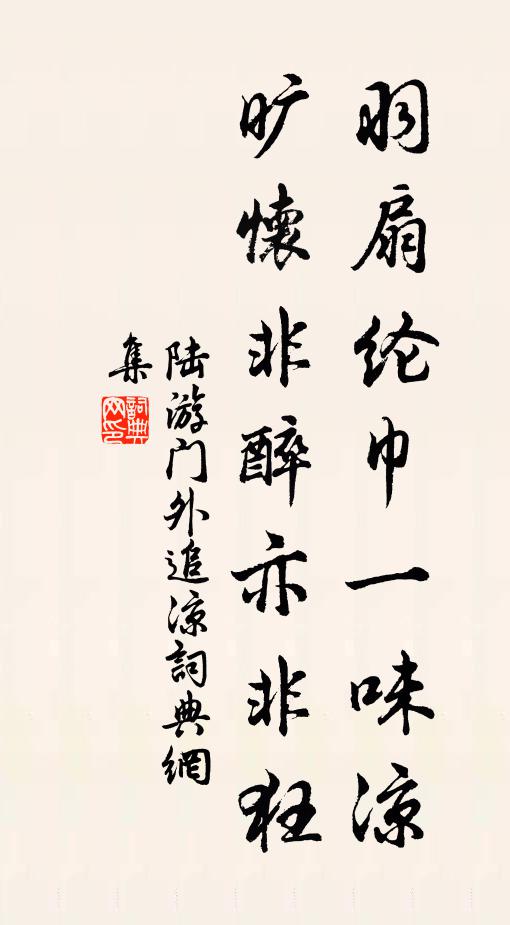 羽扇纶巾一味凉
旷懷非醉亦非狂
陆游门外追凉詞典網
集
詞典网印